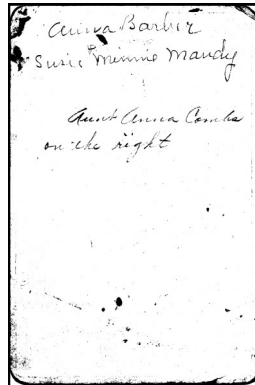 Anna Barber
Susie Minnie Mandy
Aunt Anna Combs
on the right